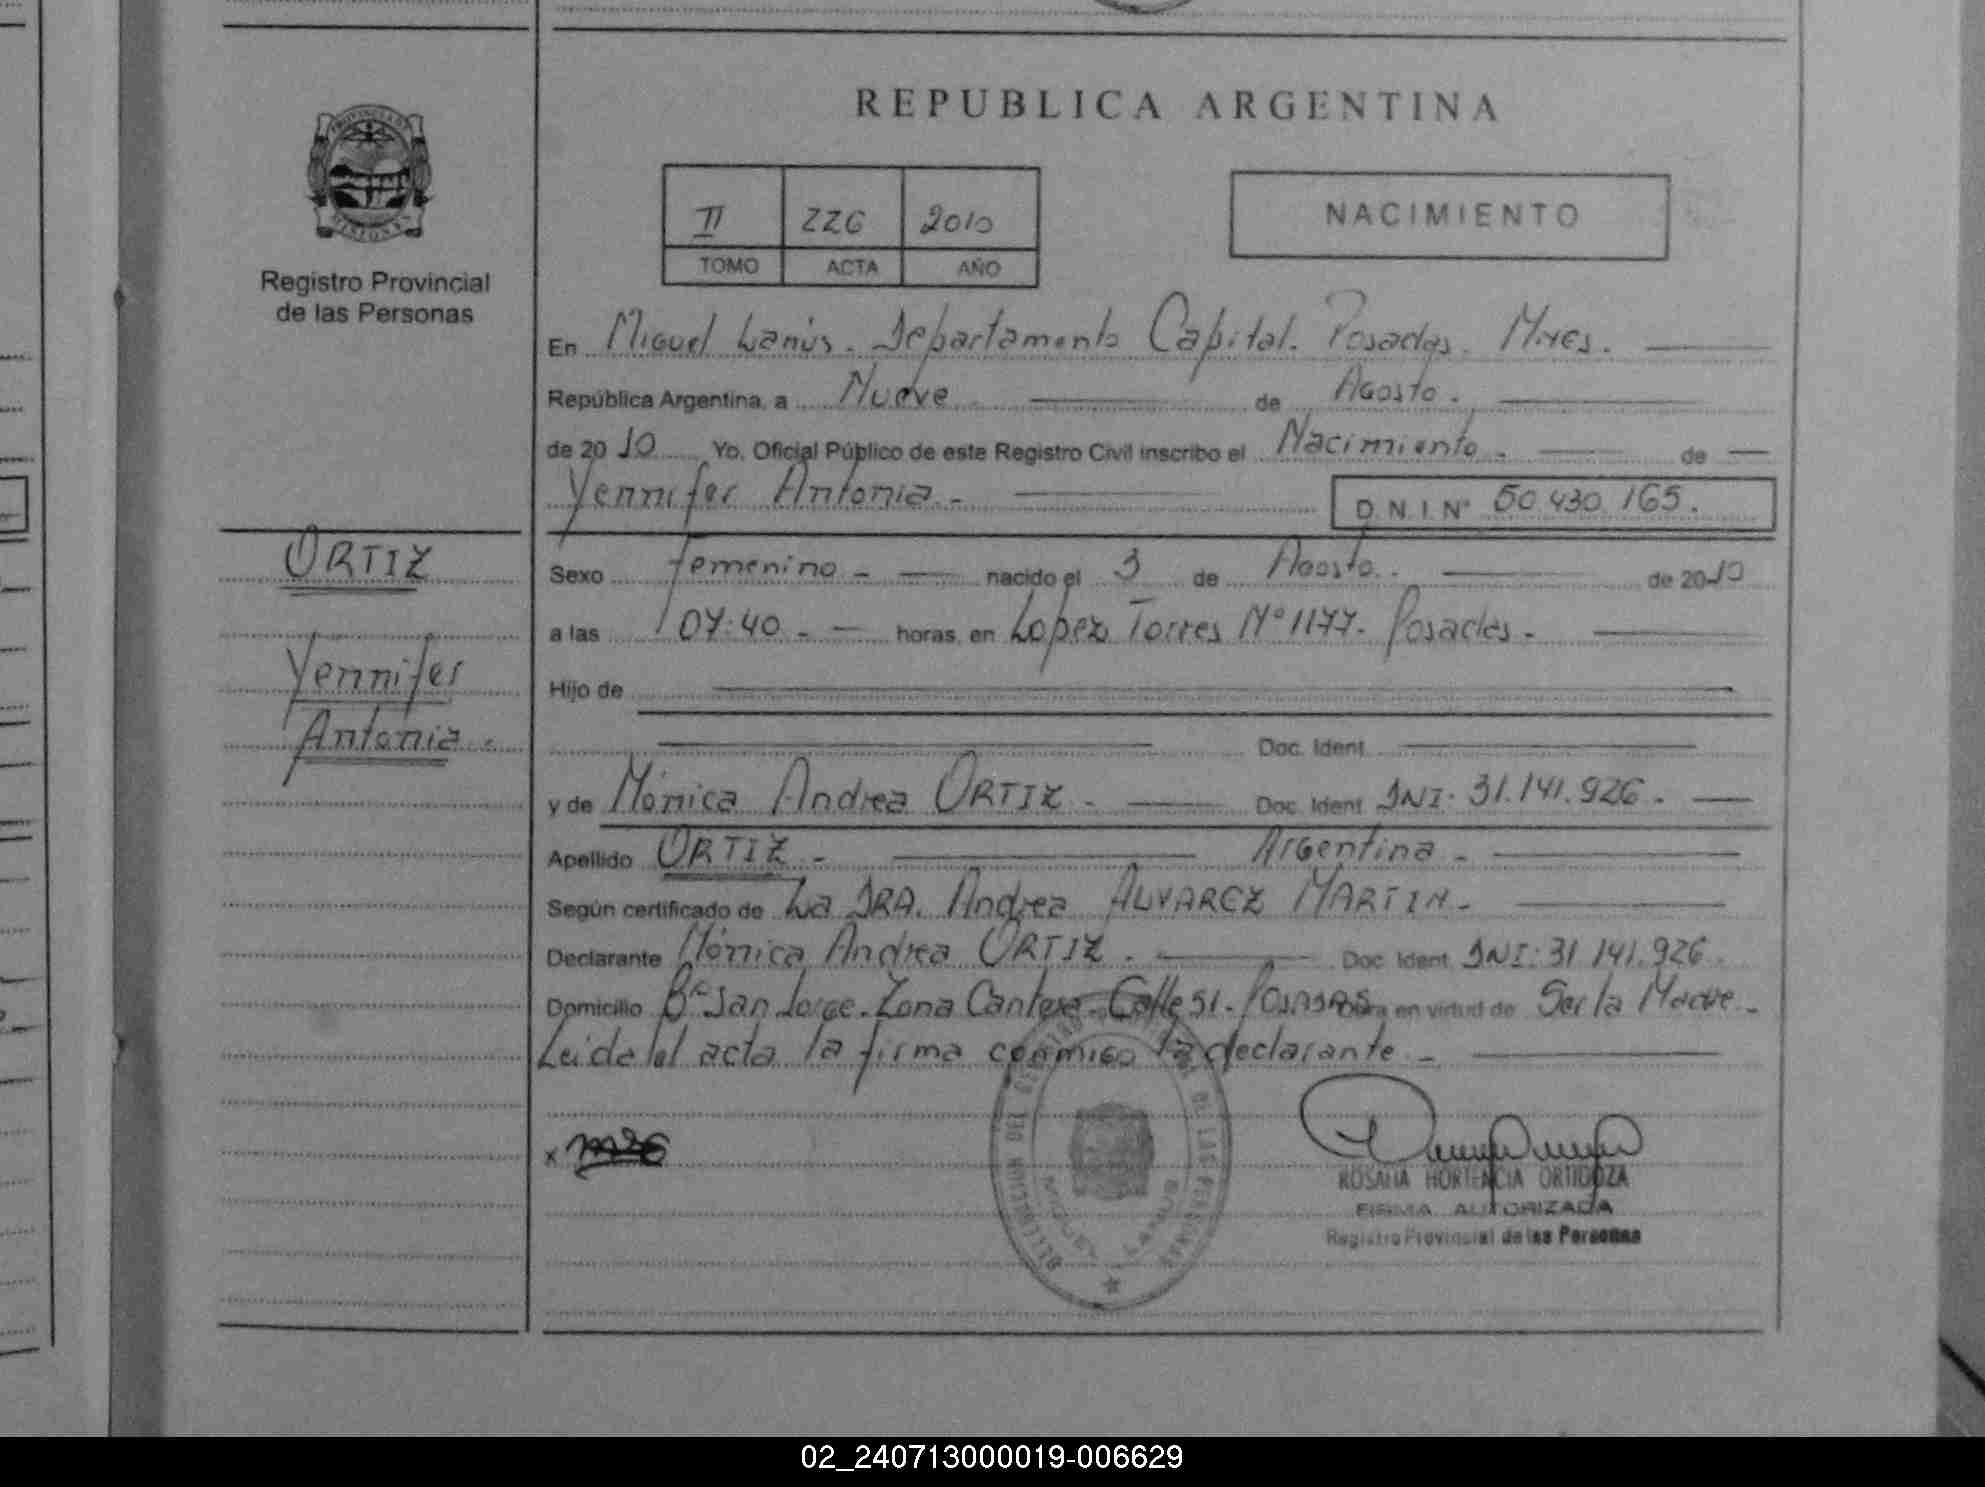 REPUBLICA ARGENTINA
PROVINCIA DE
MISIONES
Registro Provincial
de las Personas
II 226 2010
TOMO ACTA AÑO
NACIMIENTO
En Miguel Lanús. Departamento Capital. Posadas. Mnes.
República Argentina, a Nueve de Agosto.
de 2010 Yo, Oficial Público de este Registro Civil inscribo el Nacimiento. de
Yennifer Antonia.- D.N.I. Nº 50.430.165.
ORTIZ
Yennifer
Antonia.
Sexo femenino - nacido el 3 de Agosto. de 2010
a las 07:40 - horas, en Lopez Torres Nº 1177. Posadas.
Hijo de
Doc. Ident.
y de Mónica Andrea ORTIZ. Doc. Ident. DNI: 31.141.926.
Apellido ORTIZ - Argentina -
Según certificado de La DRA. Andrea ALVAREZ MARTIN.
Declarante Mónica Andrea ORTIZ. Doc. Ident. DNI: 31.141.926.
Domicilio Bº San Jorge. Zona Cantera. Calle 51. Posadas Obra en virtud de Ser la Madre.
Leida el acta la firma conmigo la declarante.
x
DELEGACION DEL REGISTRO PROVINCIAL DE LAS PERSONAS
MIGUEL LANUS
ROSALIA HORTENCIA ORTIGOZA
FIRMA AUTORIZADA
Registro Provincial de las Personas
02_240713000019-006629